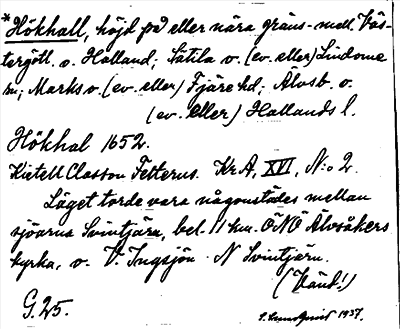 *Hökhall, höjd på eller nära gräns mell. Väs-
tergötl. o. Halland; Sätila o. (ev. eller) Lindome
sn; Marks o. (ev. eller) Fjäre hd; Älvsb. o.
(ev. eller) Hallands l.
Hökhal 1652.
Kietell Classon Felterus. Kr.A, XVI, N:o 2.
Läget torde vara någonstädes mellan
sjöarna Svintjärn, bel. 11 km. ÖNÖ Älvsåkers
kyrka, o. V. Ingsjön N Svintjärn.
(Vänd!)
G. 25.
1937.